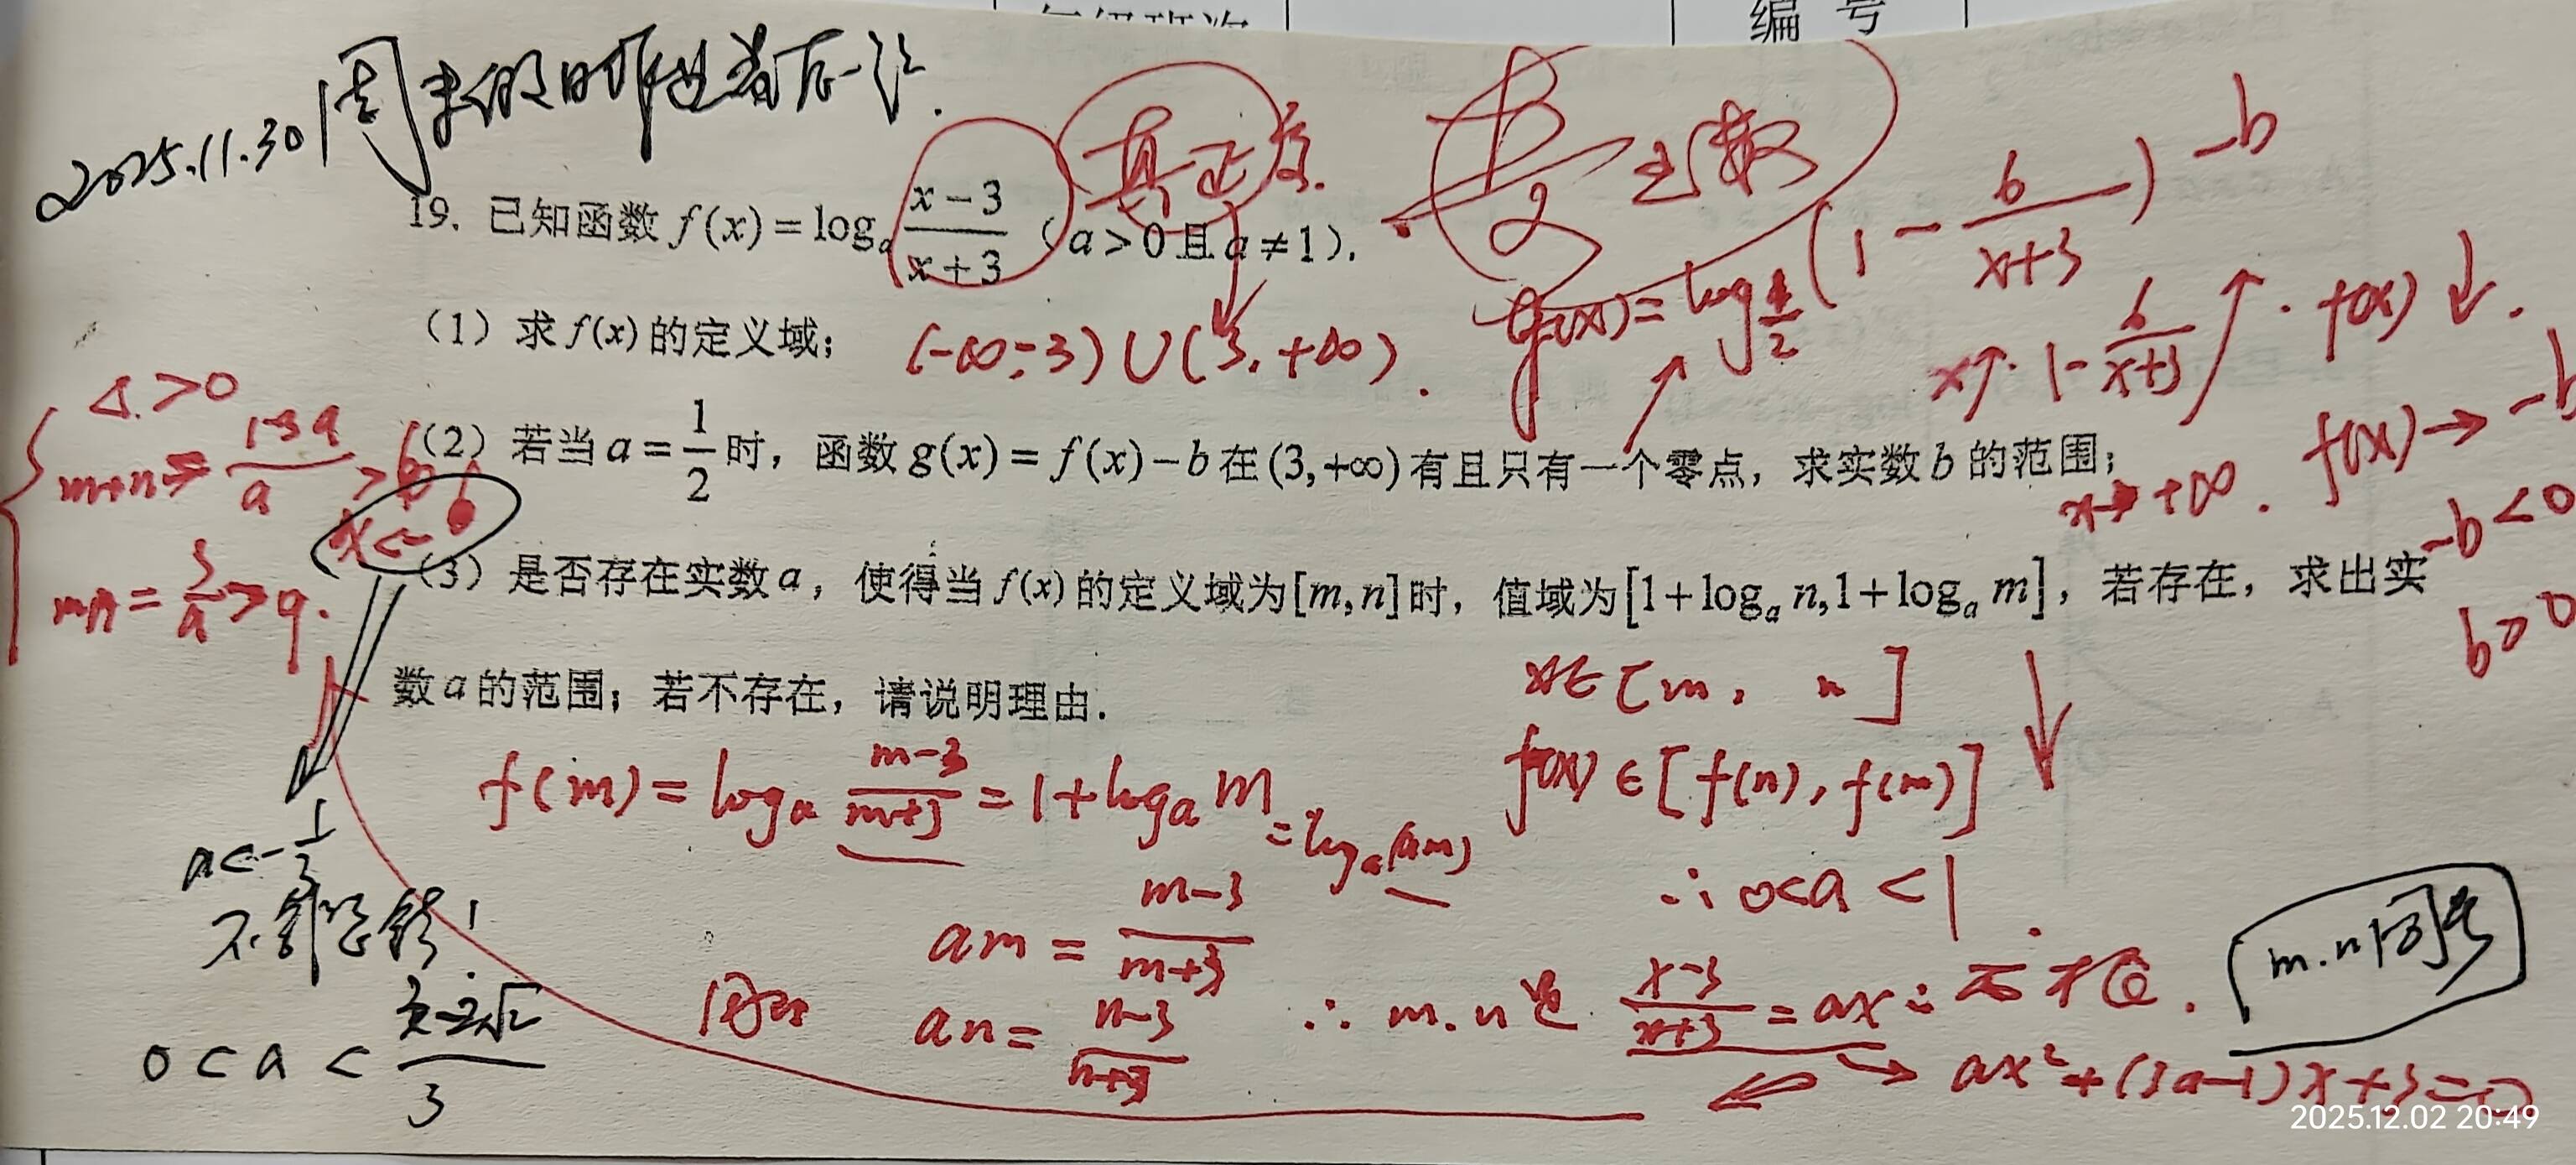 编 号
2025.11.30
19. 已知函数 f(x)=log_a (x-3)/(x+3) (a>0且a≠1).
-b
f(x)=log_{1/2}(1-6/(x+3))
(1) 求f(x)的定义域;
(-∞,-3)∪(3,+∞).
x↑. 1-6/(x+3)↑. f(x)↓.
Δ>0
m+n=(1-3a)/a>6
(2) 若当a=1/2时, 函数g(x)=f(x)-b在(3,+∞)有且只有一个零点, 求实数b的范围;
x→+∞. f(x)→-b
-b<0
b>0
mn=3/a>9.
(3) 是否存在实数a, 使得当f(x)的定义域为[m,n]时, 值域为[1+log_a n,1+log_a m], 若存在, 求出实
数a的范围; 若不存在, 请说明理由.
x∈[m, n]
f(m)=log_a (m-3)/(m+3)=1+log_a m=log_a(am)
f(x)∈[f(n),f(m)]
∴0<a<1.
am=(m-3)/(m+3)
同理 an=(n-3)/(n+3) ∴m.n是 (x-3)/(x+3)=ax
m.n同号
ax²+(3a-1)x+3=0
0<a<(3-2√2)/3
2025.12.02 20:49